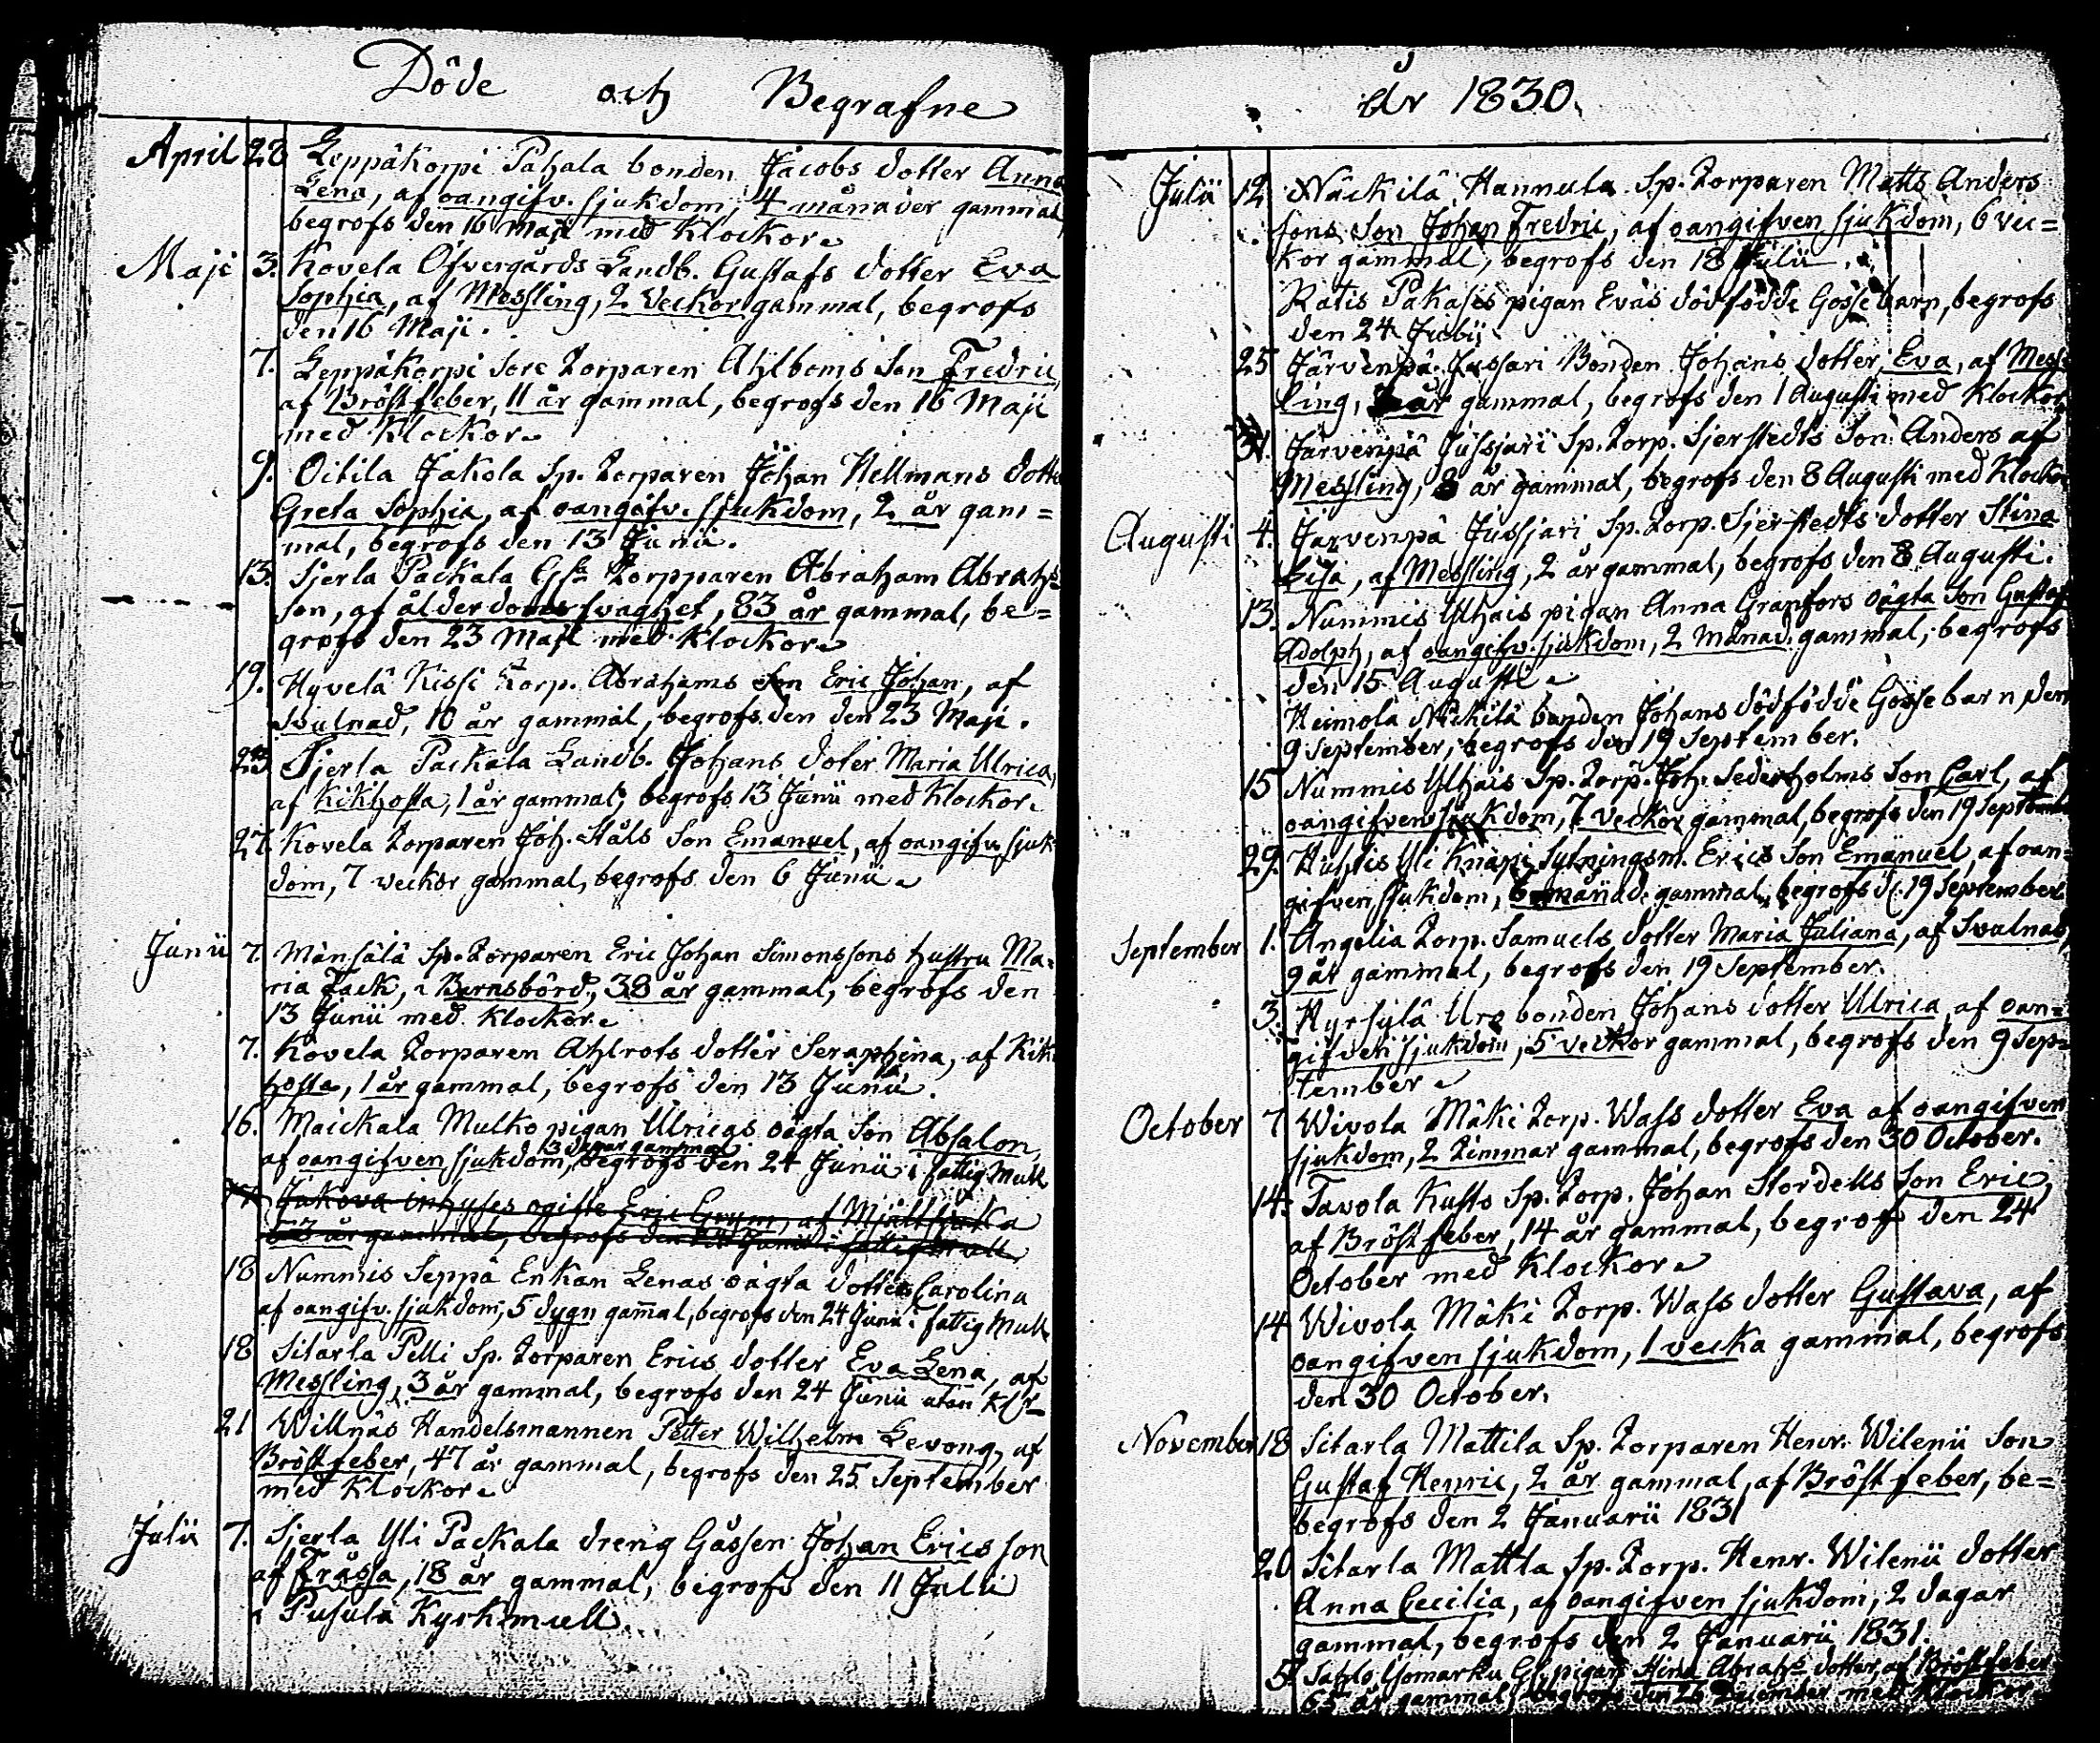 Döde och Begrafne
April 28 Leppäkorpi Pahala bonden Jacobs dotter Anna
Lena, af oangifv. sjukdom, 4 månader gammal
begrofs den 16 Maji med Klockor
Maji 3. Kovela Öfvergårds Landb. Gustafs dotter Eva
Sophia, af Messling, 2 Veckor gammal, begrofs
den 16 Maji.
7. Leppäkorpi Sore Torparen Ahlboms Son Fredric,
af Bröstfeber, 11 år gammal, begrofs den 16 Maji
med Klockor
9. Oitila Jakola Sp. Torparen Johan Hellmans dotte
Greta Sophia, af oangifv. sjukdom, 2 år gam=
mal, begrofs den 13 Junii.
13. Sjerla Packala Torpparen Abraham Abrahs
son, af ålderdoms svaghet, 83 år gammal, be=
grofs den 23 Maji med Klockor
19. Hyvelä Kissi Torp. Abrahams Son Eric Johan, af
Svulnad, 10 år gammal, begrofs den den 23 Maji.
23 Sjerla Packala Landb. Johans doter Maria Ulrica,
af Kikhosta, 1 år gammal, begrofs 13 Junii med Klockor
27. Kovela Torparen Joh. Ståls Son Emanuel, af oangifv. sjuk
dom, 7 veckor gammal, begrofs den 6 Junii
Junii 7. Mänsälä Sp. Torparen Eric Johan Simonssons hustru Ma=
ria Tack, i Barnsbörd, 38 år gammal, begrofs den
13 Junii med Klockor
7. Kovela Torparen Ahlrots dotter Seraphina, af Kik
hosta, 1 år gammal, begrofs den 13 Junii.
16. Maickala Mulko pigan Ulricas oägta Son Absalon,
13 dagar gammal
af oangifven sjukdom, begrofs den 24 Junii i fattig Mull
Jakova inhyses ogifte Eric Grym, af Mjältsjuka
53 år gammal, begrofs den Junii i fattig Mull
18 Nummis Seppä Enkan Lenas oägta dotter Carolina
af oangifv. sjukdom, 5 dygn gam̄al, begrofs den 24 Junii i fattig Mull
18 Sitarla Pelli Sp. Torparen Erics dotter Eva Lena, af
Messling, 3 år gammal, begrofs den 24 Junii utan Kl
21 Willnäs Handelsmannen Petter Wilhelm Levong, af
Bröstfeber, 47 år gammal, begrofs den 25 September
med Klockor
Julii 7. Sjerla Yli Packala dreng Gåssen Johan Erics son
af Frässa, 18 år gammal, begrofs den 11 Julii
i Pusula Kyrkmull.
År 1830.
Julii 12 Näckilä Hannula Sp. Torparen Matts Anders
sons Son Johan Fredric, af oangifven sjukdom, 6 vec=
kor gammal, begrofs den 18 Julii.
Ratis Pakases pigan Evas dödfödde Gossebarn, begrofs
den 24
25 Järvenpä Jussari Bonden Johans dotter Eva, af Mess
ling, år gammal, begrofs den 1 Augusti med Klockor
31. Järvenpä Jussjari Sp. Torp. Sjerstedts Son Anders af
Messling, 8 år gammal, begrofs den 8 Augusti med Klockor
Augusti 4. Järvenpä Jussjari Sp. Torp. Sjerstedts dotter Stina
Lisa, af Messling, 2 år gammal, begrofs den 8 Augusti.
13. Nummis Ylhais pigan Anna Granfors oägta Son Gustaf
Adolph, af oangifv. sjukdom, 2 Månad. gammal, begrofs
den 15 Augusti
Heimola Näckilä bonden Johans dödfödde Gossebarn den
9 September, begrofs den 19 September.
15 Nummis Ylhais Sp. Torp. Joh. Sederholms Son Carl, af
oangifven sjukdom, 7 veckor gammal, begrofs den 19 September
29. Huhtis Yli Knapi Sytningsm. Erics Son Emanuel, af oan=
gifven sjukdom, 6 månad. gammal, begrofs d. 19 September
September 1. Angelia Torp. Samuels dotter Maria Juliana, af Svulnad,
9 år gammal, begrofs den 19 September.
3. Hyrsylä Uro bonden Johans dotter Ulrica, af oan=
gifven sjukdom, 5 veckor gammal, begrofs den 9 Sep=
tember
October 7 Wivola Mäki Torp. Wass dotter Eva af oangifven
sjukdom, 2 Timmar gammal, begrofs den 30 October.
14. Tavola Kusto Sp. Torp. Johan Stordells Son Eric,
af Bröstfeber, 14 år gammal, begrofs den 24
October med Klockor
14 Wivola Mäki Torp. Wass dotter Gustava, af
oangifven sjukdom, 1 vecka gammal, begrofs
den 30 October.
November 18 Sitarla Mattila Sp. Torparen Henr. Wilenii Son
Gustaf Henric, 2 år gammal, af Bröstfeber, be=
begrofs den 2 Januarii 1831
20 Sitarla Mattla Sp. Torp. Henr. Wilenii dotter
Anna Cecilia, af oangifven sjukdom, 2 dagar
gammal, begrofs den 2 Januarii 1831.
5. pigan Stina Abrahs dotter, af Bröstfeber
65 år gammal, begrofs den 26 December med Klockor